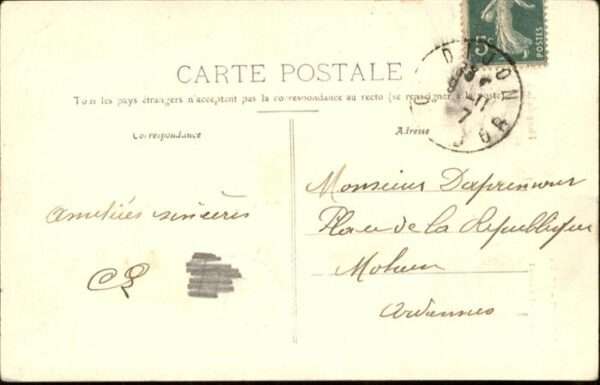 5c
POSTES
DIJON
COTE D'OR
11
7
CARTE POSTALE
Tous les pays étrangers n'acceptent pas la correspondance au recto (se renseigner à la poste)
Correspondance
Adresse
amitiés sincères
Monsieur
Place de la République
Ardennes